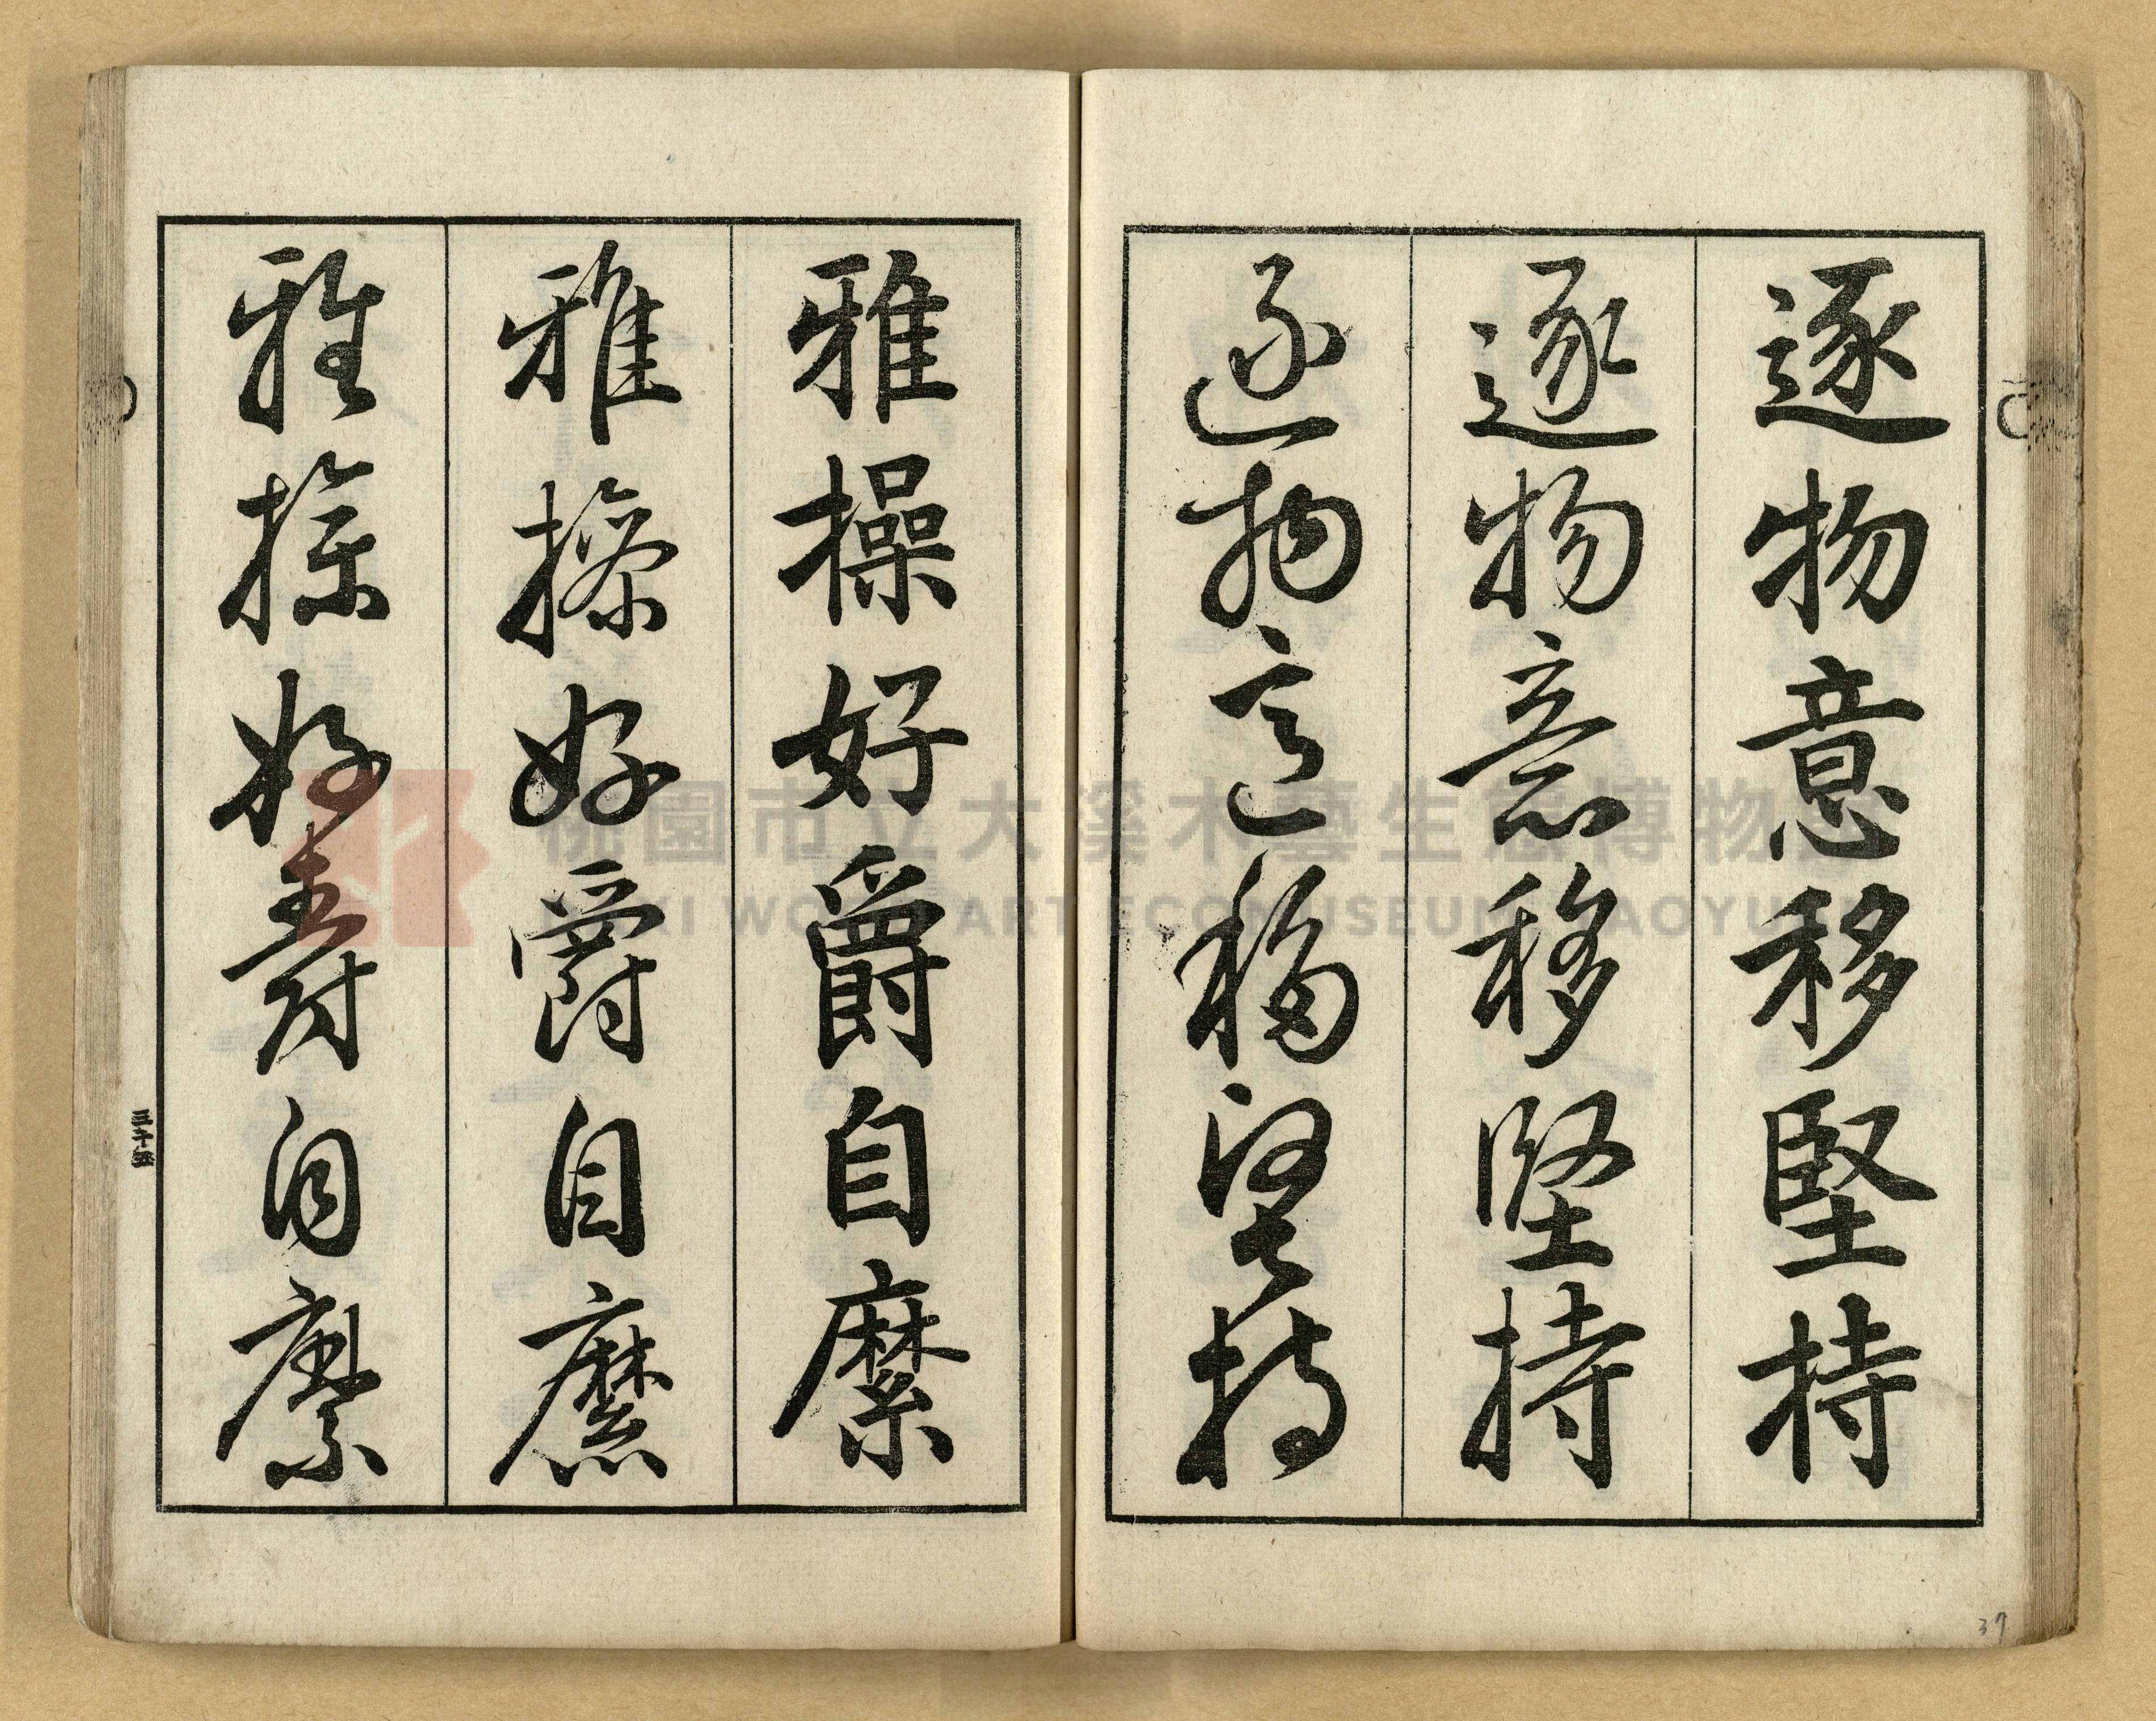 逐物意移堅持
逐物意移堅持
逐物意移堅持
雅操好爵自縻
雅操好爵自縻
雅操好爵自縻
三十五
37
桃園市立大溪木藝生態博物館
DAXI WOOD ART ECOMUSEUM, TAOYUAN